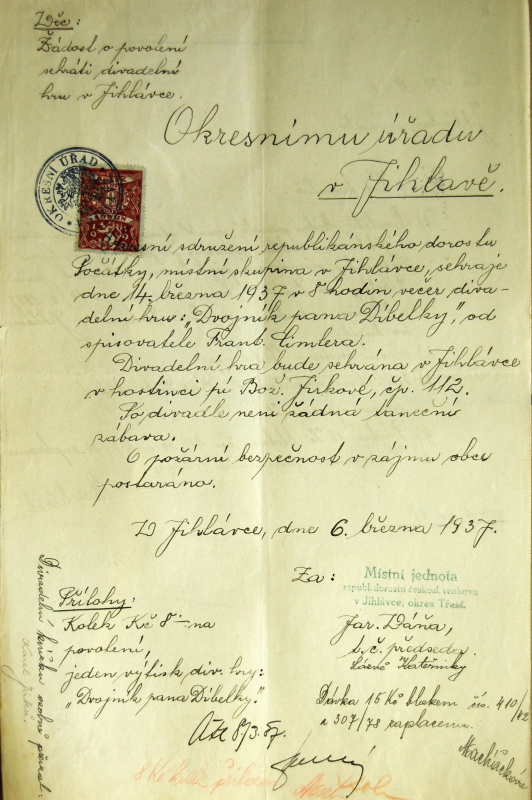 Věc:
Žádost o povolení
sehráti divadelní
hru v Jihlávce.
Okresnímu úřadu
v Jihlavě.
OKRESNÍ ÚŘAD
sdružení republikánského dorostu
Počátky, místní skupina v Jihlávce, sehraje
dne 14. března 1937 v 8 hodin večer diva-
delní hru: "Dvojník pana Dibelky", od
spisovatele Frant. Cimlera.
Divadelní hra bude sehrána v Jihlávce
v hostinci pí Bož. Jirkové, čp. 112.
Po divadle není žádná taneční
zábava.
O požární bezpečnost v zájmu obce
postaráno.
V Jihlávce, dne 6. března 1937.
Za:
Místní jednota
republ. dorostu českosl. venkova
v Jihlávce, okres Třešť.
Jar. Dáňa,
t. č. předseda.
Přílohy:
Kolek Kč 8 na
povolení,
jeden výtisk div. hry:
"Dvojník pana Dibelky."
Dávka 15 Kč blokem čís. 410/42
a 307/78 zaplacena.
8/3. 37.
Divadelní knížku osobně převzal:
8 Kč